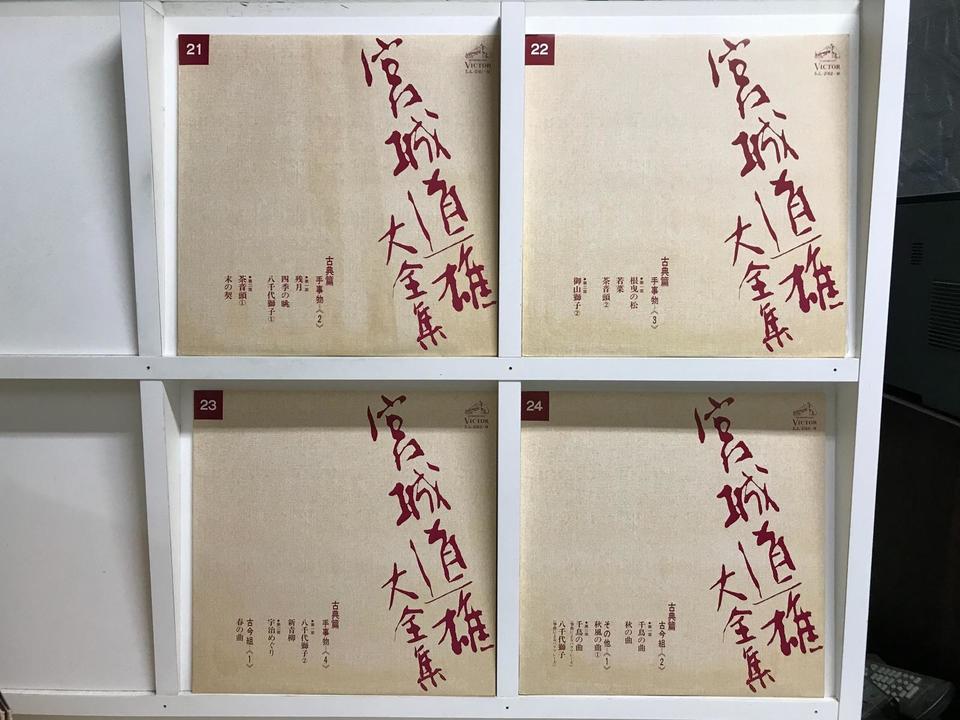 21
宮城道雄
大全集
VICTOR
古典篇
手事物―《2》
●第一面
残月
四季の眺
八千代獅子①
●第二面
茶音頭①
末の契
22
宮城道雄
大全集
VICTOR
古典篇
手事物―《3》
●第一面
根曳の松
若菜
茶音頭②
●第二面
御山獅子②
23
宮城道雄
大全集
VICTOR
古典篇
手事物―《4》
●第一面
新青柳
八千代獅子②
●第二面
宇治めぐり
古今組―《1》
春の曲
24
宮城道雄
大全集
VICTOR
古典篇
古今組―《2》
●第一面
千鳥の曲
秋の曲
その他―《1》
秋風の曲①
●第二面
千鳥の曲
八千代獅子